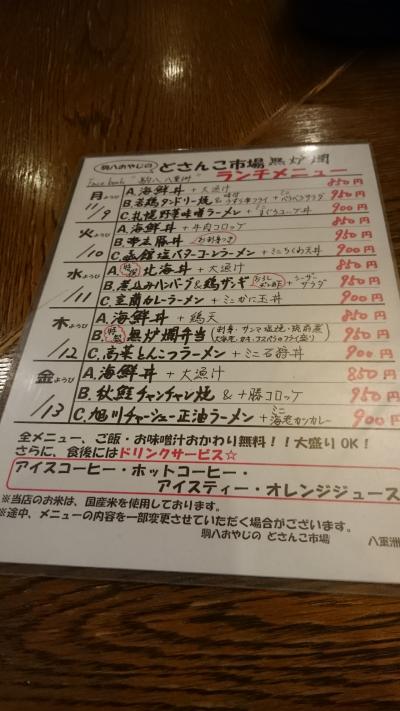 駒八おやじの どさんこ市場 無炉爛
Facebook "駒八 八重洲" ランチメニュー
月ようび 11/9 A.海鮮丼 +大漁汁 850円
B.若鶏タンドリー焼 & サラダ 950円
C.札幌野菜味噌ラーメン + ミニまぐろユッケ丼 900円
火ようび /10 A.海鮮丼 +牛肉コロッケ 850円
B.帯広豚丼 (お刺身つき) 950円
C.函館塩バターコーンラーメン +ミニちくわ天丼 900円
水ようび /11 A.特製 北海丼 +大漁汁 850円
B.煮込みハンバーグと鶏ザンギ +シーザーサラダ 950円
C.室蘭カレーラーメン +ミニかに玉丼 900円
木ようび /12 A.海鮮丼 +鶏天 850円
B.特製 無炉爛弁当 950円
C.高菜とんこつラーメン +ミニ石狩丼 900円
金ようび /13 A.海鮮丼 +大漁汁 850円
B.秋鮭チャンチャン焼 & 十勝コロッケ 950円
C.旭川チャーシュー正油ラーメン +ミニ海老カツカレー 900円
全メニュー、ご飯・お味噌汁おかわり無料!!大盛りOK!
さらに、食後にはドリンクサービス☆
アイスコーヒー・ホットコーヒー・
アイスティー・オレンジジュース
※当店のお米は、国産米を使用しております。
※途中、メニューの内容を一部変更させていただく場合がございます。
駒八おやじの どさんこ市場 八重洲